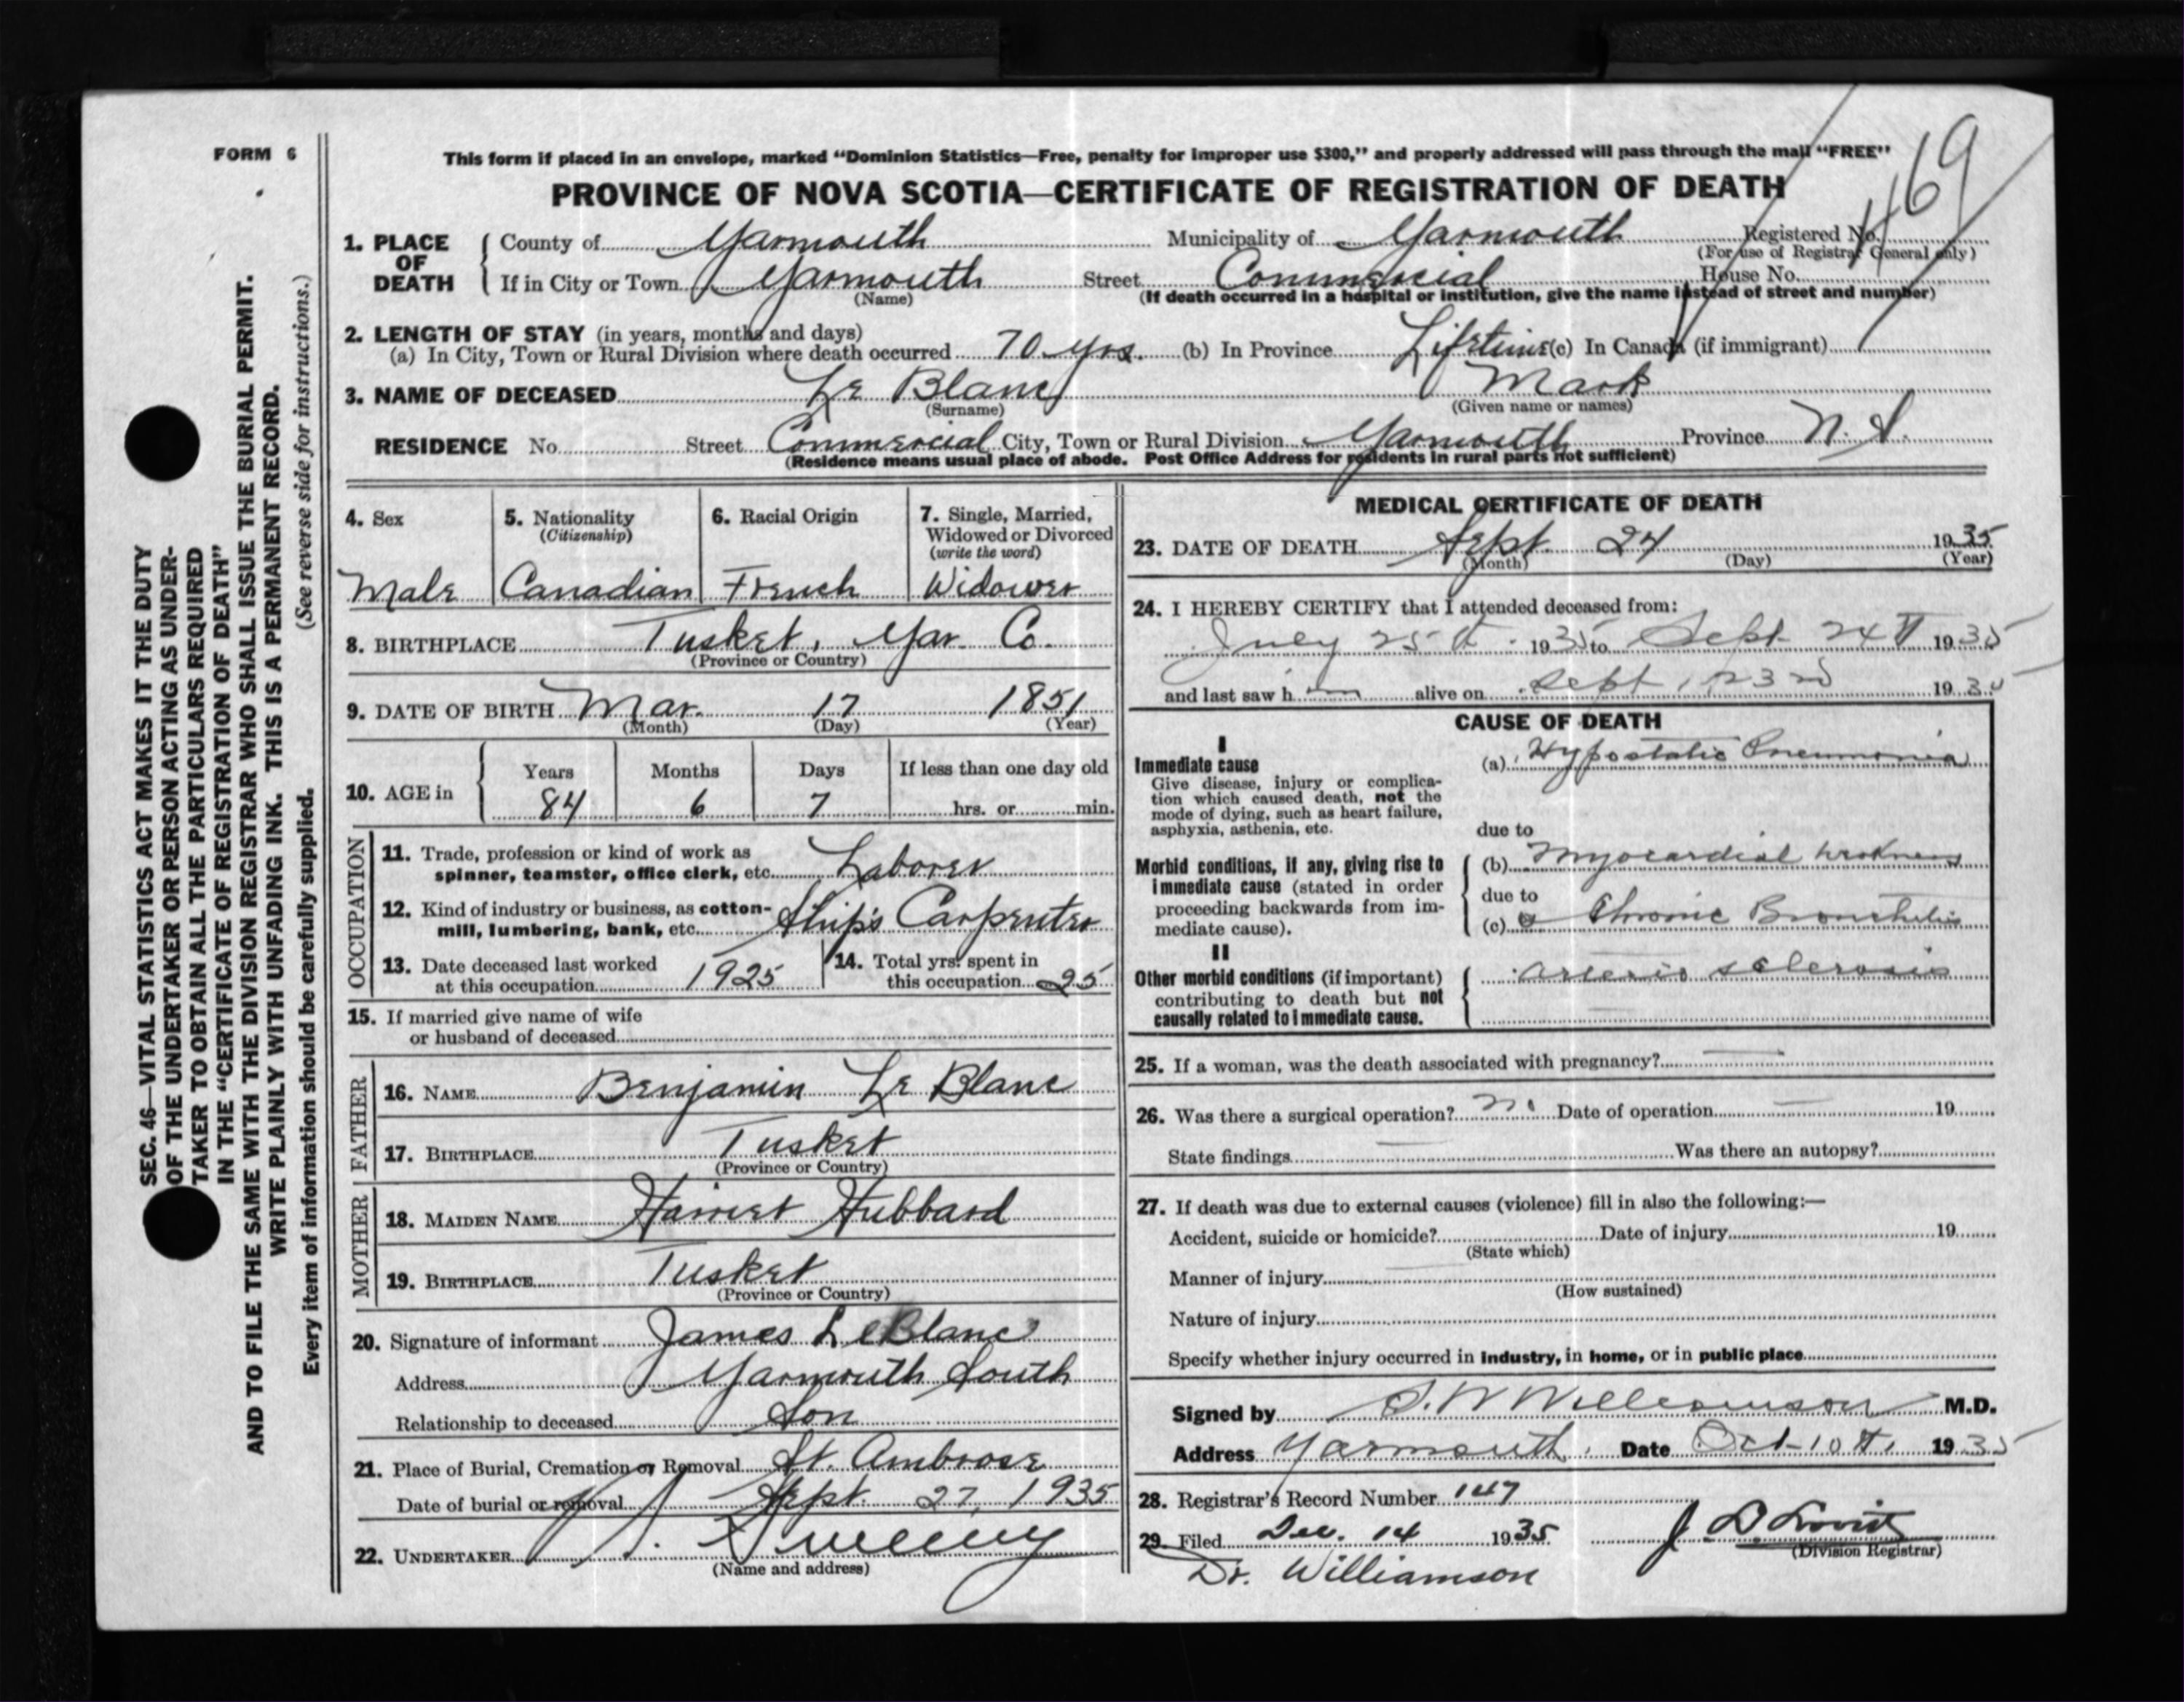 FORM 6
This form if placed in an envelope, marked "Dominion Statistics—Free, penalty for improper use $300," and properly addressed will pass through the mail "FREE"
PROVINCE OF NOVA SCOTIA—CERTIFICATE OF REGISTRATION OF DEATH
1169
1. PLACE OF DEATH { County of Yarmouth Municipality of Yarmouth Registered No.
(For use of Registrar General only)
If in City or Town Yarmouth Street Commercial House No.
(Name) (If death occurred in a hospital or institution, give the name instead of street and number)
2. LENGTH OF STAY (in years, months and days)
(a) In City, Town or Rural Division where death occurred 70 yrs. (b) In Province Lifetime (c) In Canada (if immigrant)
3. NAME OF DECEASED Le Blanc Mark
(Surname) (Given name or names)
RESIDENCE No. Street Commercial City, Town or Rural Division Yarmouth Province N. S.
(Residence means usual place of abode. Post Office Address for residents in rural parts not sufficient)
4. Sex 5. Nationality 6. Racial Origin 7. Single, Married,
(Citizenship) Widowed or Divorced
(write the word)
Male Canadian French Widower
8. BIRTHPLACE Tusket, Yar. Co.
(Province or Country)
9. DATE OF BIRTH Mar. 17 1851
(Month) (Day) (Year)
10. AGE in { Years Months Days If less than one day old
84 6 7 hrs. or min.
OCCUPATION
11. Trade, profession or kind of work as
spinner, teamster, office clerk, etc. Laborer
12. Kind of industry or business, as cotton-
mill, lumbering, bank, etc. Ship's Carpenter
13. Date deceased last worked
at this occupation 1925
14. Total yrs. spent in
this occupation 25
15. If married give name of wife
or husband of deceased
FATHER
16. NAME Benjamin Le Blanc
17. BIRTHPLACE Tusket
(Province or Country)
MOTHER
18. MAIDEN NAME Harriet Hubbard
19. BIRTHPLACE Tusket
(Province or Country)
20. Signature of informant James LeBlanc
Address Yarmouth South
Relationship to deceased Son
21. Place of Burial, Cremation or Removal St. Ambrose
Date of burial or removal Sept. 27, 1935
22. UNDERTAKER V. S. Sweeny
(Name and address)
MEDICAL CERTIFICATE OF DEATH
23. DATE OF DEATH Sept. 24 1935
(Month) (Day) (Year)
24. I HEREBY CERTIFY that I attended deceased from:
July 25th 1935 to Sept 24th 1935
and last saw him alive on Sept, 23rd 1935
CAUSE OF DEATH
I
Immediate cause (a) Hypostatic Pneumonia
Give disease, injury or complica-
tion which caused death, not the
mode of dying, such as heart failure,
asphyxia, asthenia, etc.
due to
Morbid conditions, if any, giving rise to
immediate cause (stated in order
proceeding backwards from im-
mediate cause).
(b) Myocardial weakness
due to
(c) Chronic Bronchitis
II
Other morbid conditions (if important)
contributing to death but not
causally related to immediate cause.
arterio sclerosis
25. If a woman, was the death associated with pregnancy? —
26. Was there a surgical operation? no Date of operation — 19
State findings — Was there an autopsy?
27. If death was due to external causes (violence) fill in also the following:—
Accident, suicide or homicide? Date of injury 19
(State which)
Manner of injury
(How sustained)
Nature of injury
Specify whether injury occurred in industry, in home, or in public place
Signed by S. W Williamson M.D.
Address Yarmouth, Date Oct-10th, 1935
28. Registrar's Record Number 147
29. Filed Dec. 14 1935
(Division Registrar)
Dr. Williamson
SEC. 46—VITAL STATISTICS ACT MAKES IT THE DUTY
OF THE UNDERTAKER OR PERSON ACTING AS UNDER-
TAKER TO OBTAIN ALL THE PARTICULARS REQUIRED
IN THE "CERTIFICATE OF REGISTRATION OF DEATH"
AND TO FILE THE SAME WITH THE DIVISION REGISTRAR WHO SHALL ISSUE THE BURIAL PERMIT.
WRITE PLAINLY WITH UNFADING INK. THIS IS A PERMANENT RECORD.
Every item of information should be carefully supplied. (See reverse side for instructions.)